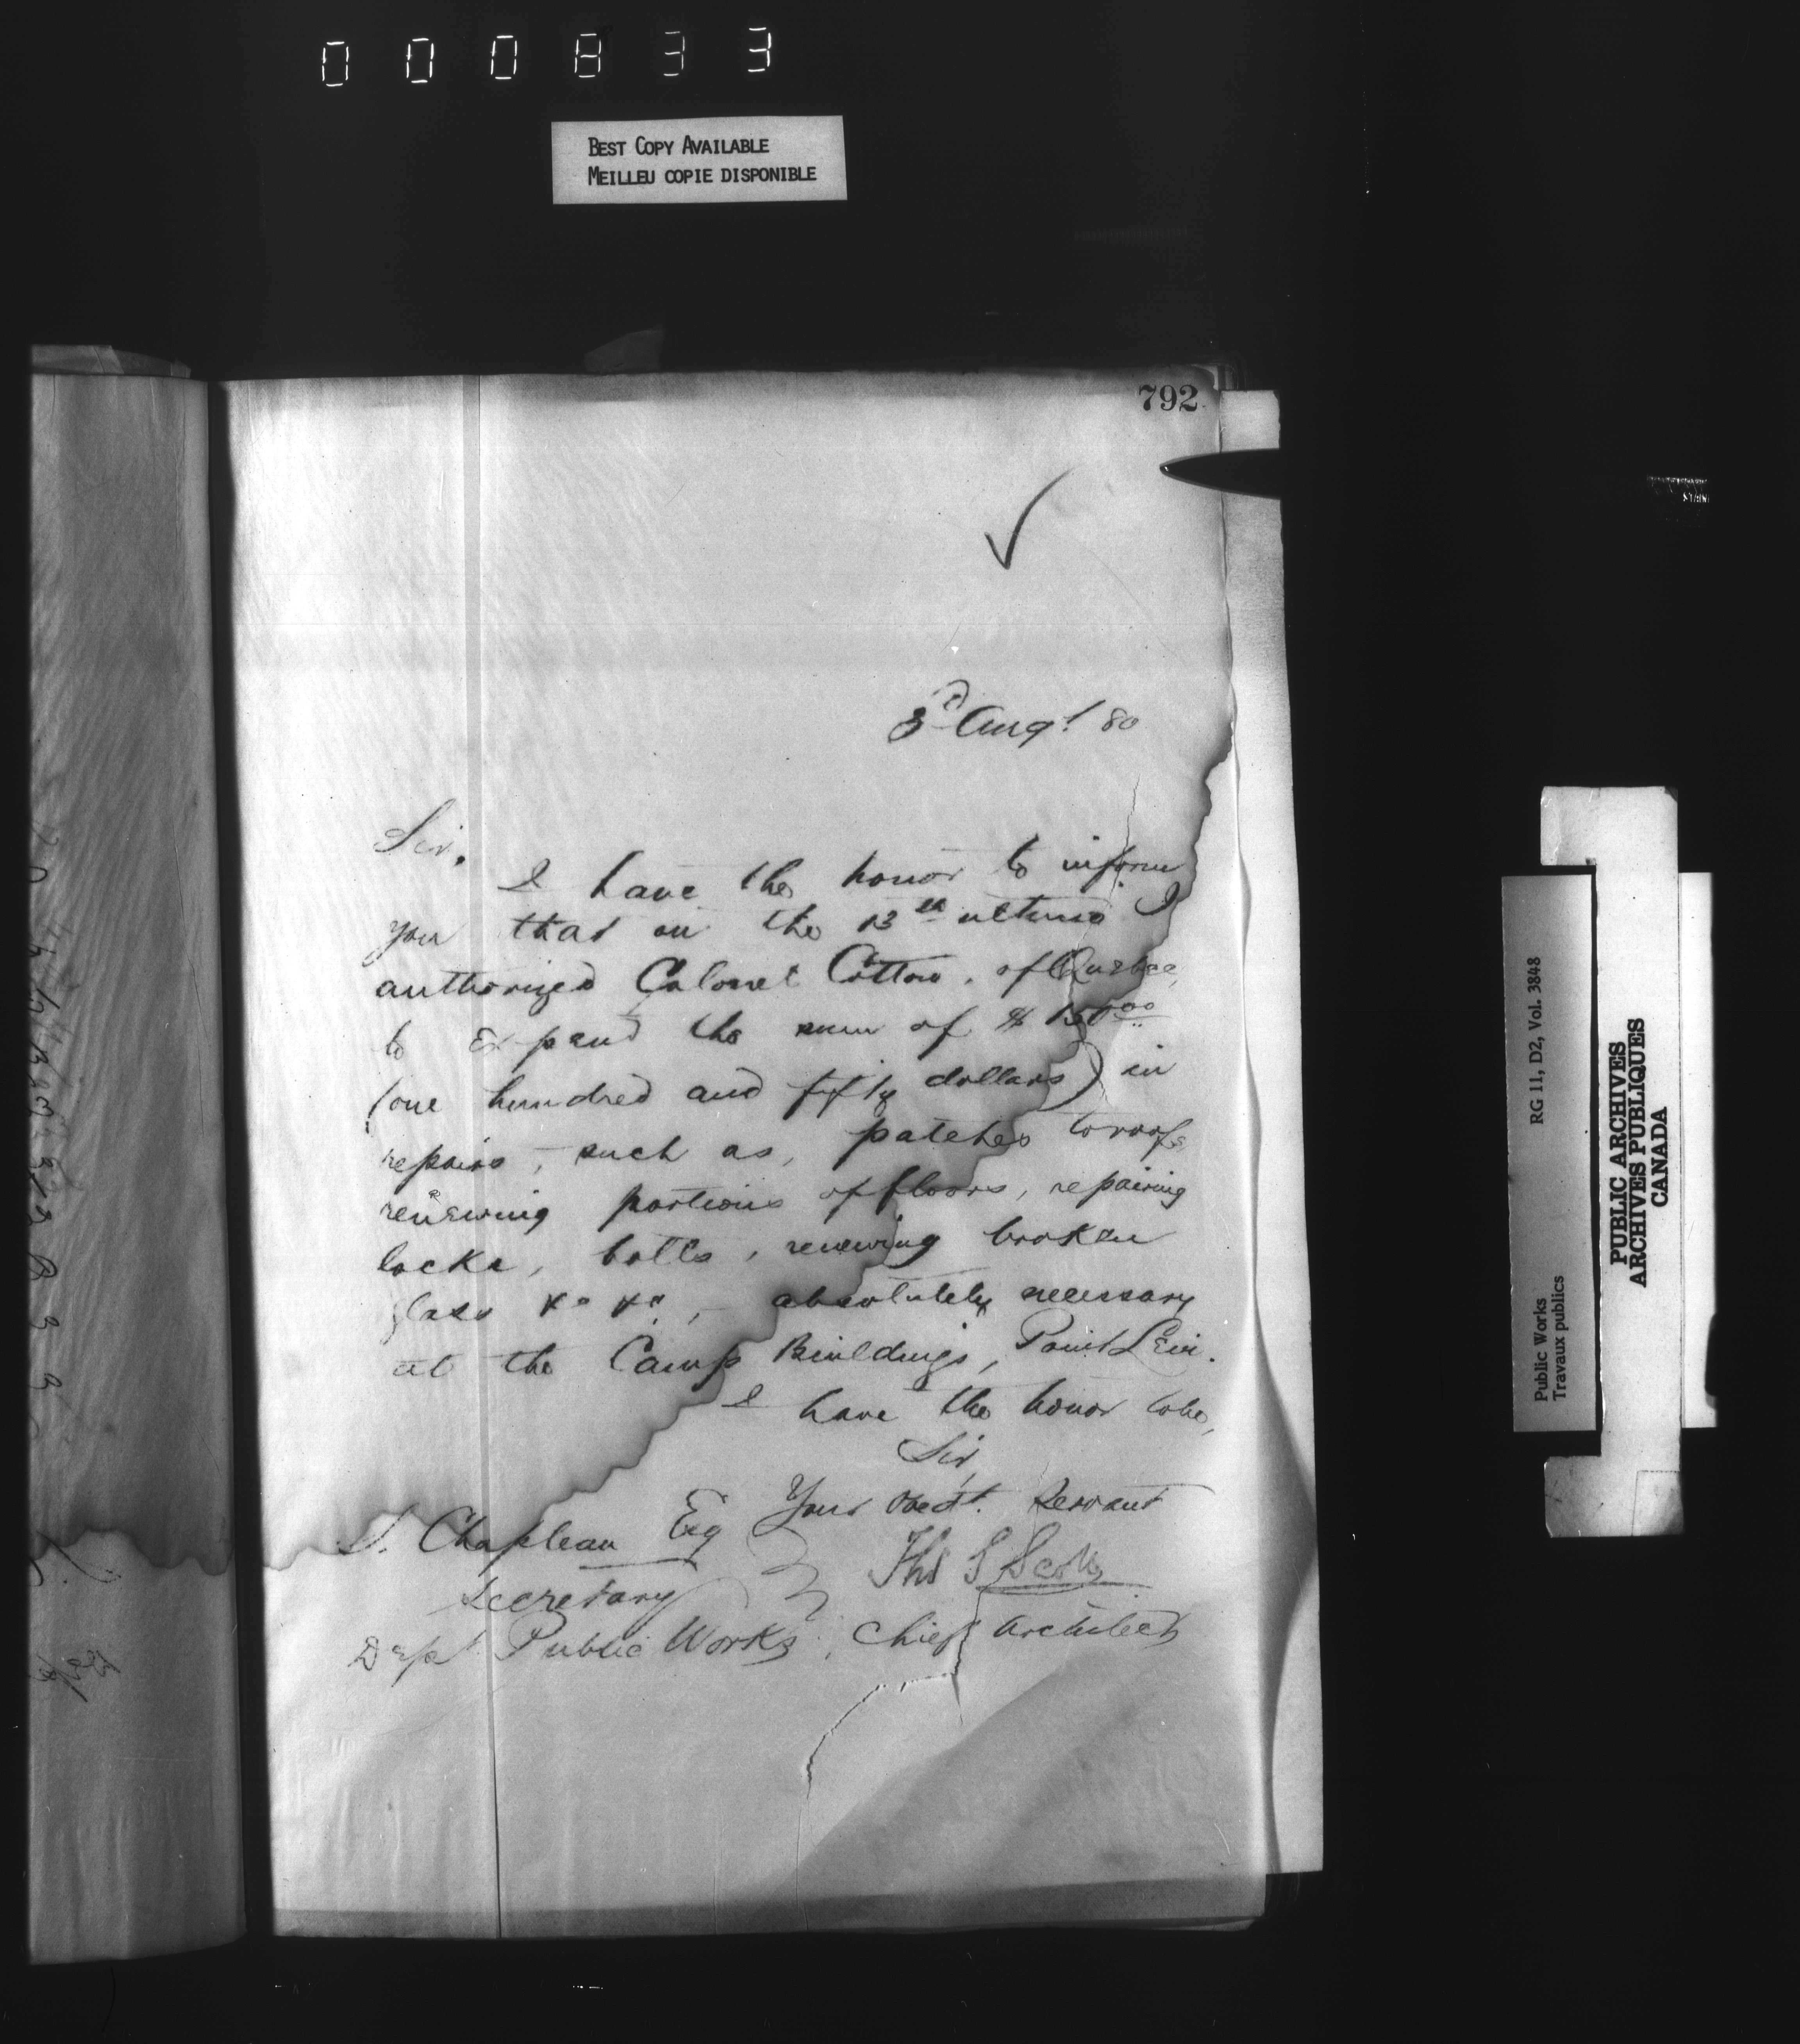 000833
BEST COPY AVAILABLE
MEILLEU COPIE DISPONIBLE
792
3d Augt. 80
Sir,
I have the honor to inform
you that on the 13th ultimo I
authorized Colonel Cotton, of Quebec,
to expend the sum of $150.00
(one hundred and fifty dollars) in
repairs, such as, patches to roofs
renewing portions of floors, repairing
locks, bolts, renewing broken
glass &c &c, - absolutely necessary
at the Camp Buildings, Point Levi.
I have the honor to be,
Sir
Your Obedt. Servant
S. Chapleau Esq
Thos S Scott
Secretary
Dept Public Works, Chief Architect
RG 11, D2, Vol. 3848
Public Works
Travaux publics
PUBLIC ARCHIVES
ARCHIVES PUBLIQUES
CANADA